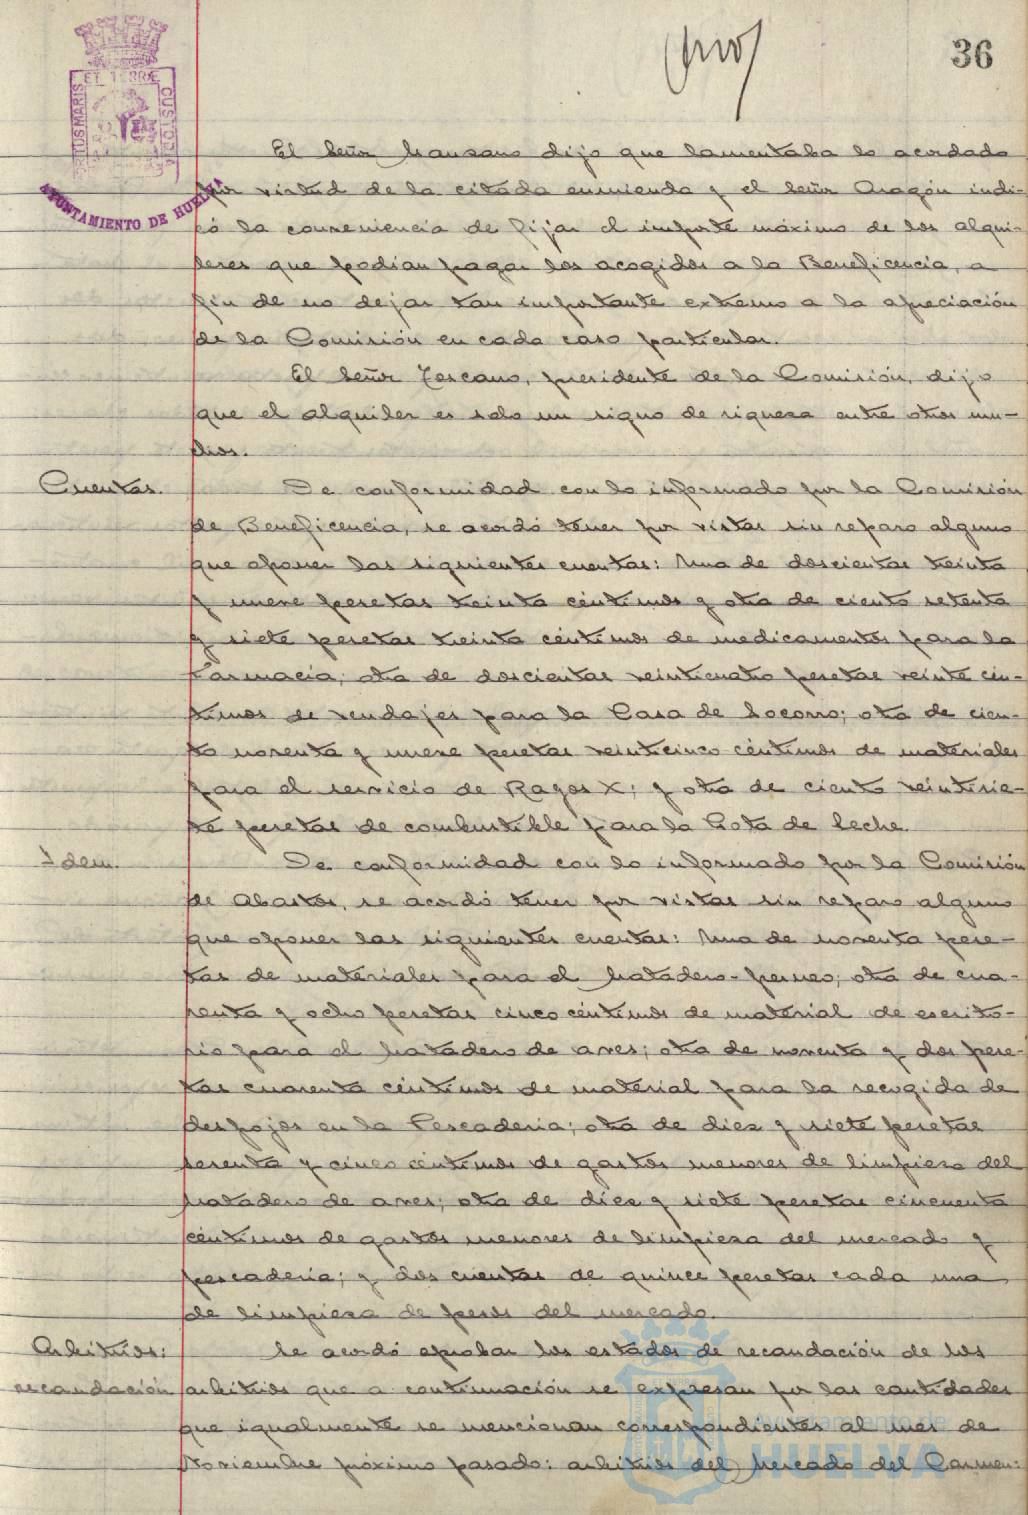 36
ET TERRÆ
PORTUS MARIS
CUSTODIA
AYUNTAMIENTO DE HUELVA
El Señor Manzano dijo que lamentaba lo acordado
por virtud de la citada enmienda y el Señor Aragón indi-
có la conveniencia de fijar el importe máximo de los alqui-
leres que podían pagar los acogidos a la Beneficencia, a
fin de no dejar tan importante extremo a la apreciación
de la Comisión en cada caso particular.
El Señor Toscano, presidente de la Comisión, dijo
que el alquiler es solo un signo de riqueza entre otros mu-
chos.
Cuentas. De conformidad con lo informado por la Comisión
de Beneficencia, se acordó tener por vistas sin reparo alguno
que oponer las siguientes cuentas: Una de doscientas treinta
y nueve pesetas treinta céntimos y otra de ciento setenta
y siete pesetas treinta céntimos de medicamentos para la
Farmacia; otra de doscientas veinticuatro pesetas veinte cén-
timos de vendajes para la Casa de Socorro; otra de cien-
to noventa y nueve pesetas veinticinco céntimos de materiales
para el servicio de Rayos X; y otra de ciento veintisie-
te pesetas de combustible para la Gota de Leche.
Idem. De conformidad con lo informado por la Comisión
de Abastos, se acordó tener por vistas sin reparo alguno
que oponer las siguientes cuentas: Una de noventa pese-
tas de materiales para el Matadero-perneo; otra de cua-
renta y ocho pesetas cinco céntimos de material de escrito-
rio para el Matadero de aves; otra de noventa y dos pese-
tas cuarenta céntimos de material para la recogida de
despojos en la Pescaderia; otra de diez y siete pesetas
sesenta y cinco céntimos de gastos menores de limpieza del
Matadero de aves; otra de diez y siete pesetas cincuenta
céntimos de gastos menores de limpieza del mercado y
pescadería; y dos cuentas de quince pesetas cada una
de limpieza de pesos del mercado.
Arbitrios: Se acordó aprobar los estados de recaudación de los
recaudación arbitrios que a continuación se expresan por las cantidades
que igualmente se mencionan correspondientes al mes de
Noviembre próximo pasado: arbitrios del Mercado del Carmen:
Ayuntamiento de
HUELVA